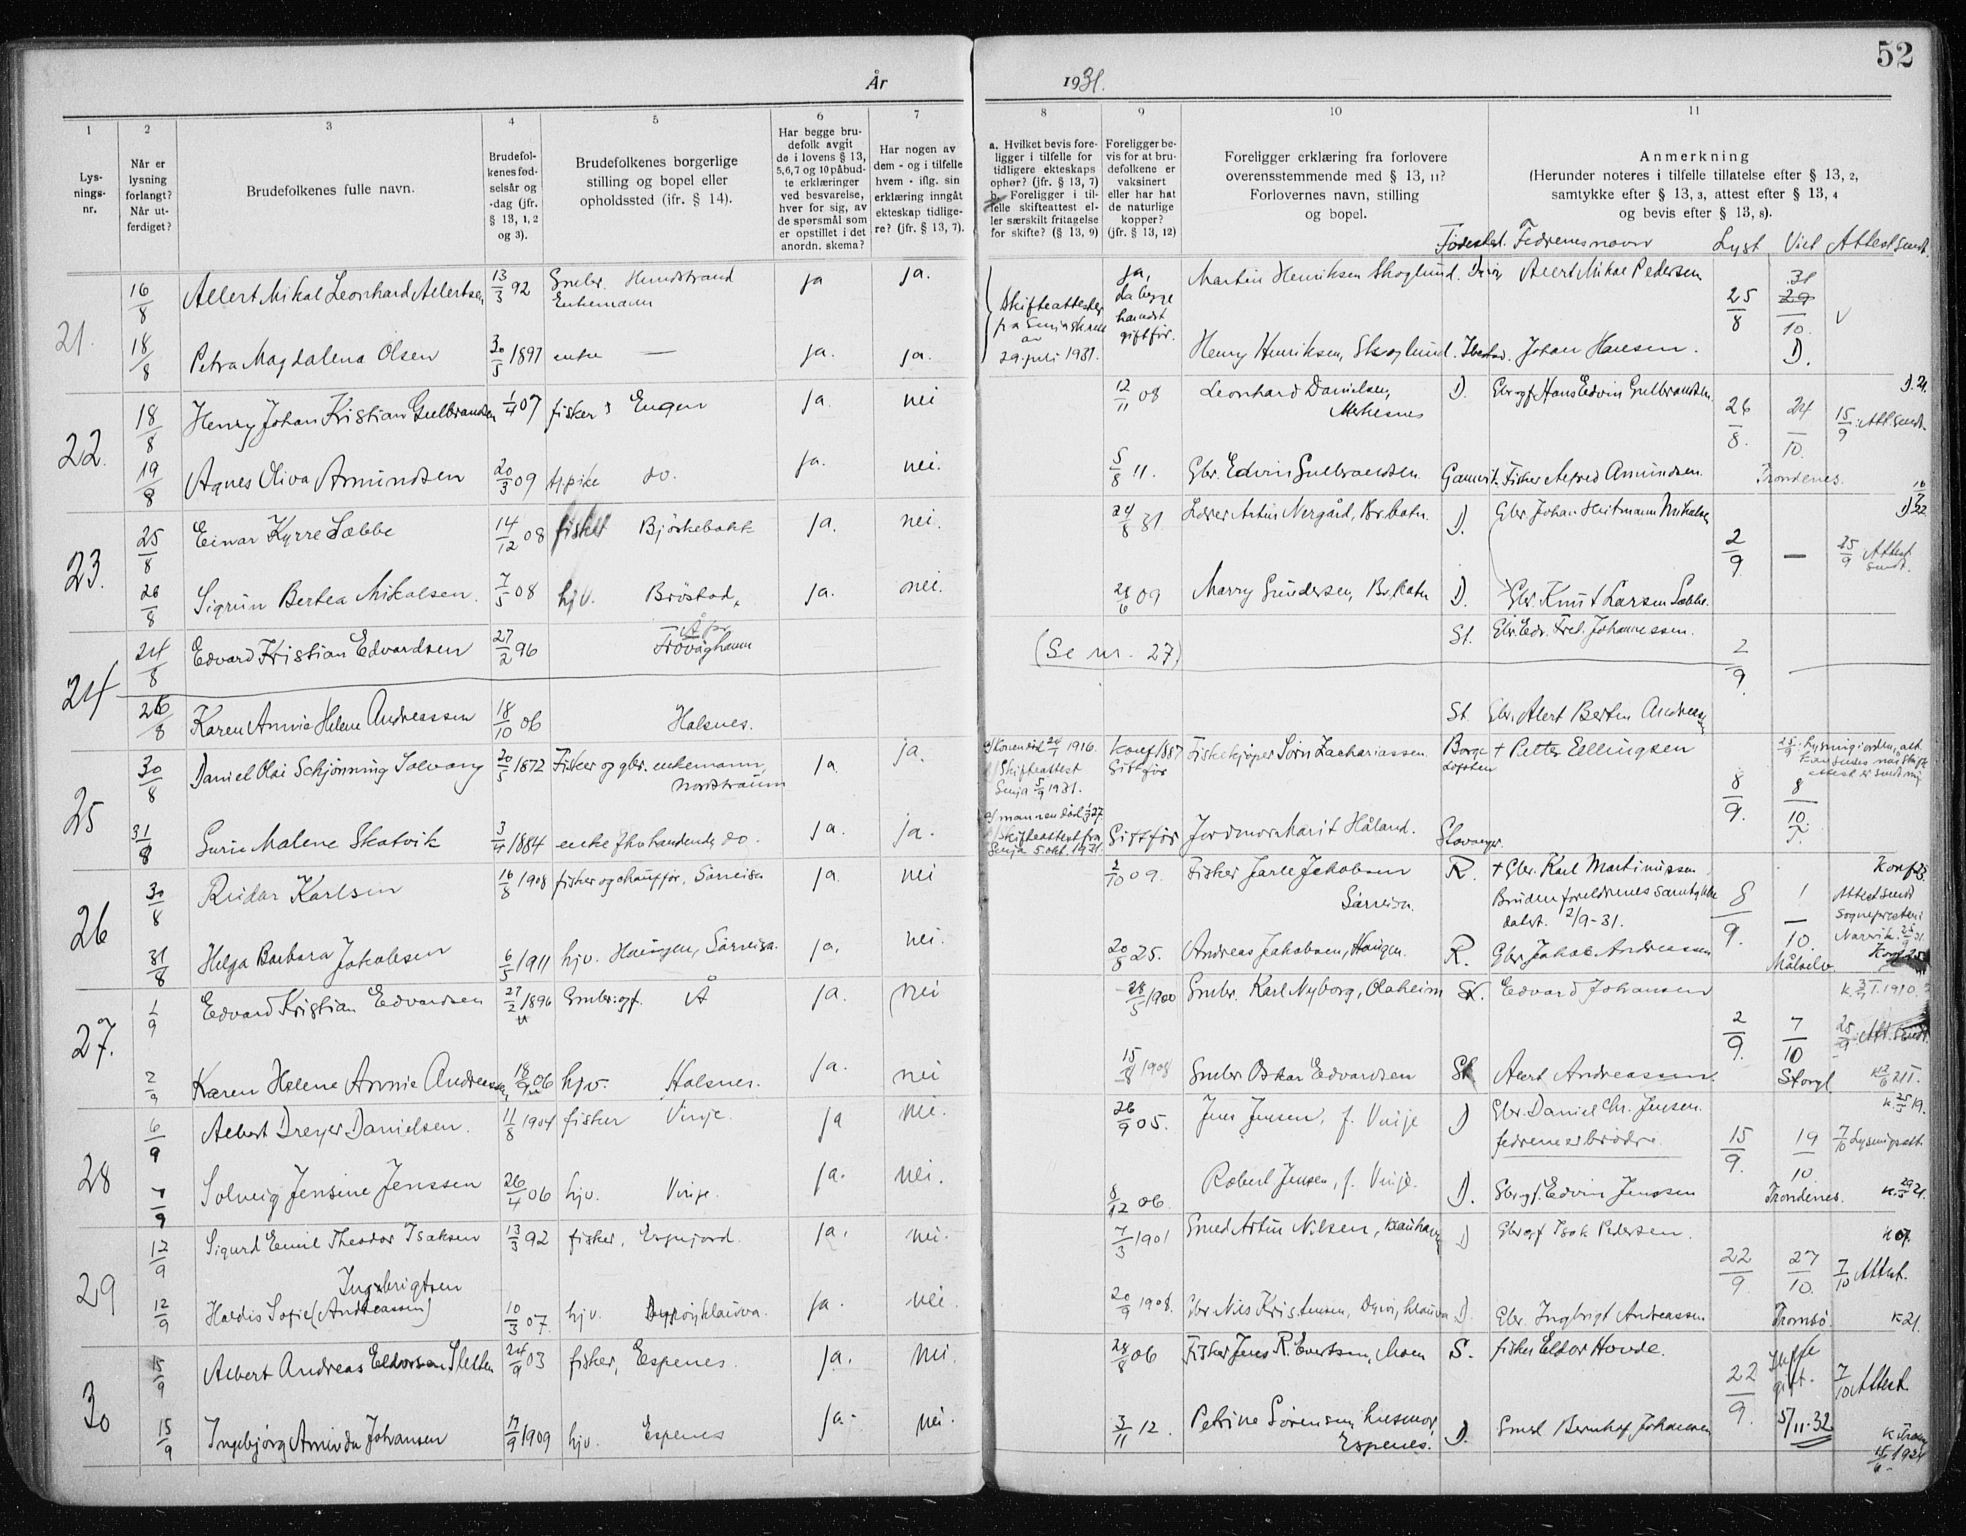 52
År 1931.
1
2
3
4
5
6
7
8
9
10
11
Lys-
nings-
nr.
Når er
lysning
forlangt?
Når ut-
ferdiget?
Brudefolkenes fulle navn.
Brudefol-
kenes fød-
selsår og
-dag (jfr.
§ 13, 1, 2
og 3).
Brudefolkenes borgerlige
stilling og bopel eller
opholdssted (jfr. § 14).
Har begge bru-
defolk avgit
de i lovens § 13,
5,6,7 og 10 påbud-
te erklæringer
ved besvarelse,
hver for sig, av
de spørsmål som
er opstillet i det
anordn. skema?
Har nogen av
dem - og i tilfelle
hvem - iflg. sin
erklæring inngått
ekteskap tidlige-
re? (jfr. § 13, 7).
a. Hvilket bevis fore-
ligger i tilfelle for
tidligere ekteskaps
ophør? (jfr. § 13, 7)
b. Foreligger i til-
felle skifteattest el-
ler særskilt fritagelse
for skifte? (§ 13, 9)
Foreligger be-
vis for at bru-
defolkene er
vaksinert
eller har hat
de naturlige
kopper?
(jfr. § 13, 12)
Foreligger erklæring fra forlovere
overensstemmende med § 13, 11?
Forlovernes navn, stilling
og bopel.
Anmerkning
(Herunder noteres i tilfelle tillatelse efter § 13, 2,
samtykke efter § 13, 3, attest efter § 13, 4
og bevis efter § 13, 8).
Fødested. Fedrenes navn Lyst Viet Attest sendt.
21. 16/8 Allert Mikal Leonhard Allertsen 13/3 92 Gmbr. Hundstrand ja ja. Martin Henriksen Skoglund. Alert Mikal Pedersen 25/8 31
Enkemann
Skifteattester
fra Senja
29 juli 1931.
ja,
begge
giftför.
18/8 Petra Magdalena Olsen 30/5 1897 enke — ja. ja. Henry Henriksen, Skoglund. Johan Hansen. 10. D.
22. 18/8 Henry Johan Kristian Gulbrandsen 1/4 07 fisker Engen ja. nei 12/11 08 Leonhard Danielsen, D. Gbr og f Hans Edvin Gulbrandsen. 26/8. 24/10. 15/9. Att. sendt.
19/8 Agnes Oliva Amundsen 20/3 09 tj.pike do. ja. nei. 5/8 11. Gbr. Edvin Gulbrandsen Gamvik. Fisker Alfred Amundsen. Trondenes.
23. 25/8 Einar Kyrre Sæbbe 14/12 08 fisker Bjørkebakk ja. nei. 24/8 31 Lærer Artur Nergård, Br.botn. D. Gbr Johan Heitmann Mikalsen 2/9. — 25/9 Attest sendt.
26/8 Sigrun Bertea Mikalsen. 7/5 08 hjv. Brøstad, ja. nei. 28/6 09 Marry Gundersen, Br.botn D. Gbr. Knut Larsen Sæbbe.
24 24/8 Edvard Kristian Edvardsen 27/2 96 Frovåghamn (Se nr. 27) St. Gbr. Edv. Fred. Johannessen. 2/9. —
26/8 Karen Annie Helene Andreassen 18/10 06 Halsnes. St. Gbr. Alert Bertin Andreassen
25 30/8 Daniel Olai Schjønning Solvang 20/5 1872 Fisker og gbr. enkemann, Nordstraum ja. ja. a/Konen död 24/1 1916. b/Skifteattest Senja 5/9 1931. Konf 1887 Giftför Fiskekjøper Sørn Zachariassen Borge Lofoten † Petter Ellingsen 8/9. 8/10.
31/8 Gurine Malene Skatvik 3/4 1884 enke f.handlende, do. ja. ja. a/mannen död 1/2 27. b/Skifteattest fra Senja 5.okt. 1931. Giftför Jordmor Marit Håland. Stavanger.
26 30/8 Reidar Karlsen 16/8 1908 fisker og chauffør, Sørreisa ja. nei 2/10 09. Fisker Jarle Jakobsen Sørreisa. R. † Gbr. Karl Martinussen Konf 23.
Brudens foreldrenes samtykke
datert. 2/9-31. 8/9. 1/10. Attest sendt
Sognepresten i
Narvik.
31/8 Helga Barbara Jakobsen 6/5 1911 hjv. Haugen, Sørreisa. ja. nei. 20/8 25. Andreas Jakobsen, Haugen. R. Gbr Jakob Andreassen Målselv.
27. 1/9 Edvard Kristian Edvardsen 27/2 1896 Gmbr. og f. Å ja. nei 28/5 1900 Gmbr. Karl Nyborg, Olaheim St. Edvard Johansen 2/9. 7/10 25/9. Att. sendt.
2/9 Karen Helene Annie Andreassen 18/9 06 hjv. Halsnes. ja. nei 15/8 1908 Gmbr Oskar Edvardsen St. Alert Andreassen. Storgl
28 6/9 Albert Dreyer Danielsen. 11/8 1904 fisker Vinje. ja nei. 26/9 05. Jens Jensen, f. Vinje D Gbr. Daniel Chr. Jensen.
fedrene er brødre. 15/9. 19/10 7/10 Lysningsatt.
7/9 Solveig Jensine Jenssen 26/4 06 hjv. Vinje. ja. nei. 8/12 06. Robert Jensen, f. Vinje. D. Gbr og f. Edvin Jenssen Trondenes.
29 12/9 Sigurd Emil Theodor Isaksen 13/3 92 fisker, Espejord. ja. nei. 7/3 1901 Smed Artur Nilsen, D Gbr og f Isak Pedersen. 22/9. 27/10. 7/10 Attest. k 07.
Ingebrigtsen
12/9 Haldis Sofie (Andreassen) 10/3 07. hjv. Dyrøy, Klauva. ja. nei. 20/9 1908. Gbr Nils Kristensen, Dyrøy, Klauva D. Gbr. Ingbrigt Andreassen Tromsö. k 21.
30 15/9 Albert Andreas Eldorsen Sletten 24/9 03 fisker, Espenes. ja. nei. 28/8 06 Fisker Jens R. Evertsen, Moen S. fisker Eldor Hovde. 22/9. Ikke gift. 7/10 Attest.
15/9 Ingebjørg Aminda Johansen 17/9 1909 hjv. Espenes ja. nei. 3/11 12. Petrine Sörensen, husmor, Espenes. D. Smed Bernhof Johansen 5/11-32 15/6 1924